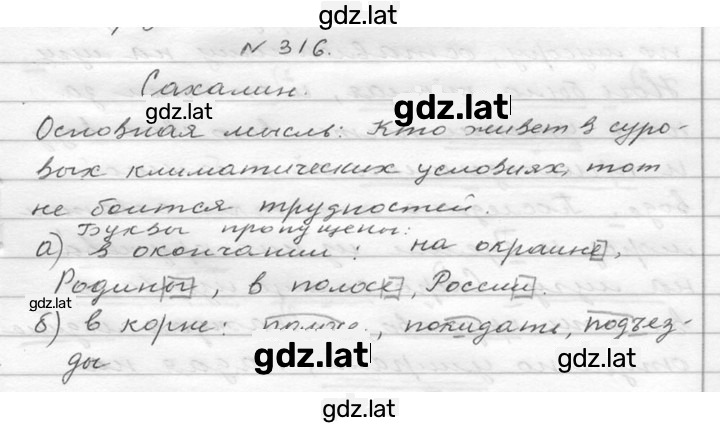 gdz.lat
N 316.
Сахалин.
gdz.lat
gdz.lat
Основная мысль: Кто живет в суро-
вых климатических условиях, тот
не боится трудностей.
Буквы пропущены:
а) в окончании: на окраине,
Родины, в полосе, России.
gdz.lat
б) в корне: покидать, подъез-
ды
gdz.lat
gdz.lat
gdz.lat